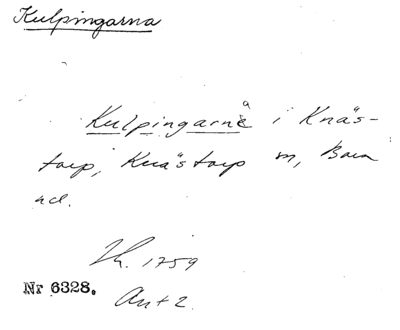 Kulpingarna
Kulpingarna i Knäs-
torp, Knästorp sn, Bara
hd.
Th. 1759
Nr 6328.
Ant 2.